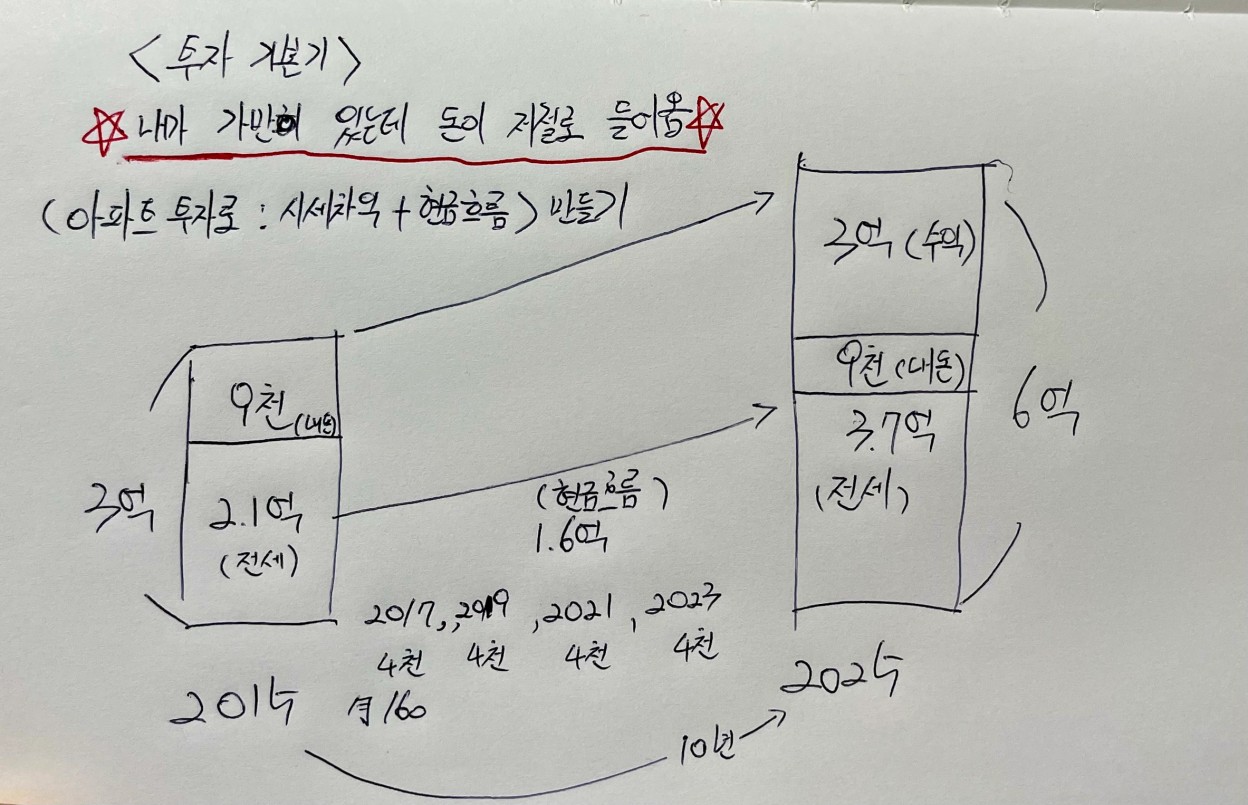 <투자 기본기>
내가 가만히 있는데 돈이 저절로 들어옴
(아파트 투자로 : 시세차익 + 현금흐름) 만들기
3억
9천 (내돈)
2.1억
(전세)
2015
(현금흐름)
1.6억
2017, 2019, 2021, 2023
4천 4천 4천 4천
月160
10년
3억 (수익)
9천 (내돈)
3.7억
(전세)
6억
2025